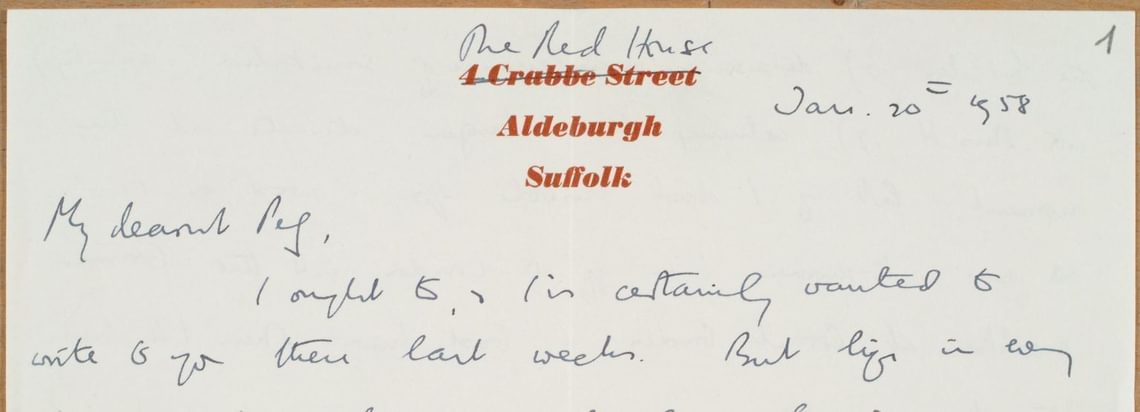 The Red House
1
4 Crabbe Street
Jan. 20 = 1958
Aldeburgh
Suffolk
My dearest Peg,
I ought to, & I've certainly wanted to
write to you these last weeks. But life in every